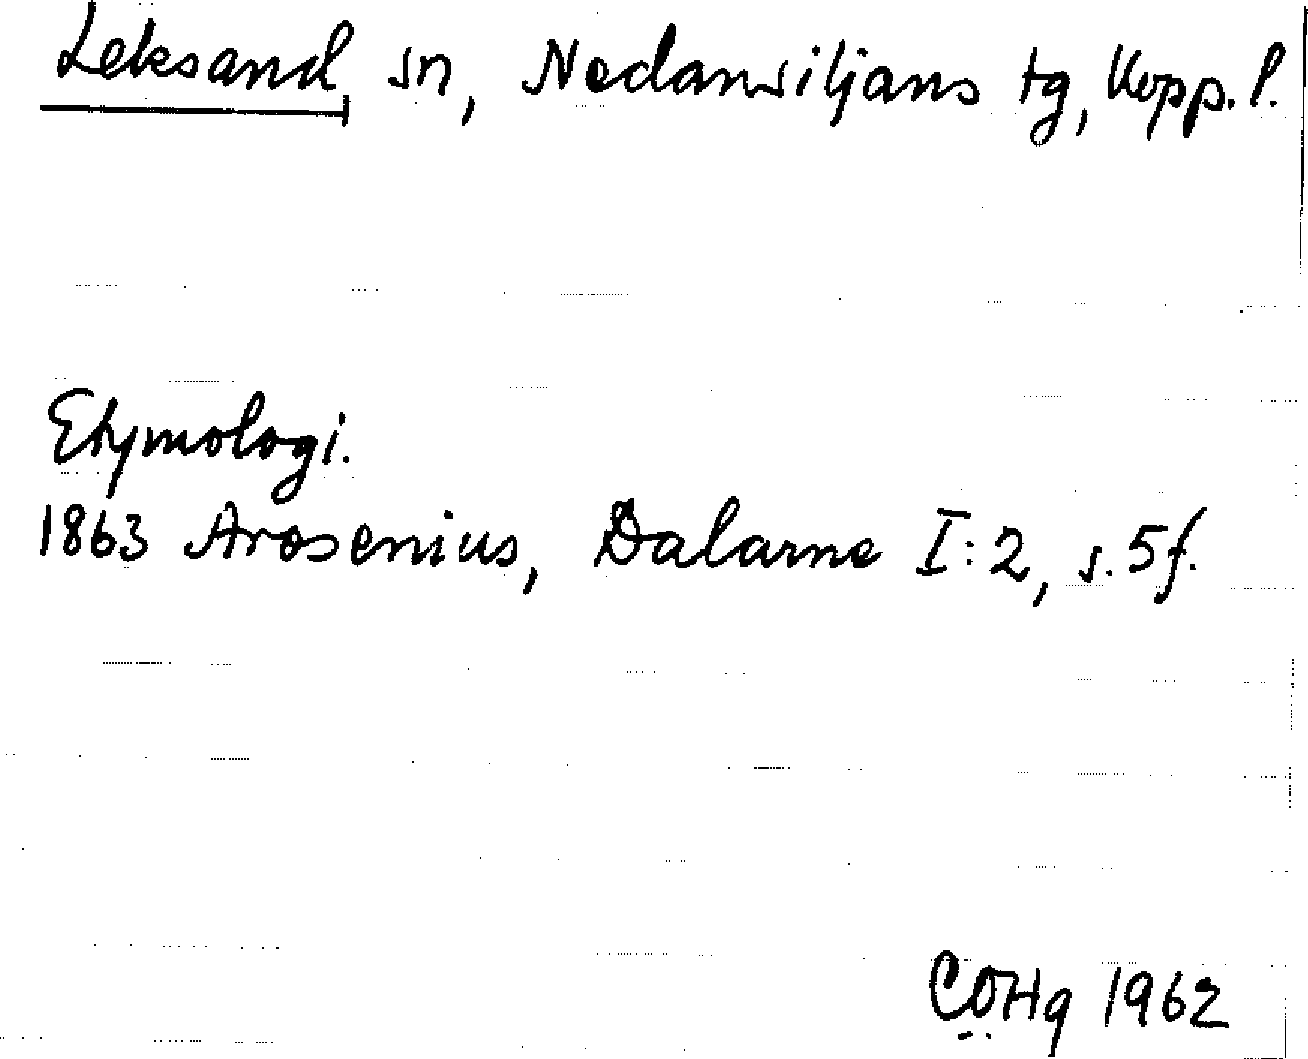 Leksand, sn, Nedansiljans tg, Kopp. l.
Etymologi.
1863 Arosenius, Dalarne I:2, s. 5 f.
COHg 1962